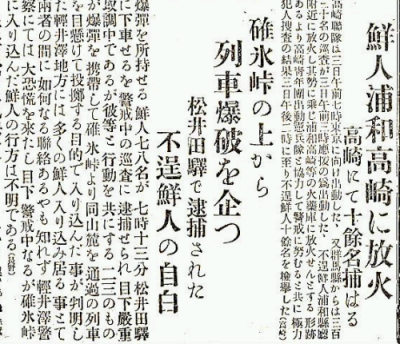 鮮人浦和高崎に放火
高崎にて十餘名捕はる
高崎聯隊は三日午前七時東京に向け出動した、又群馬縣からは三百
名の巡査が三日午前 時應援の爲出動した。不逞鮮人浦和縣廳
附近に放火し其勢に乗じ浦和高崎等の火藥庫に放火せんとする形跡
あるより高崎靑年團出動憲兵と協力して警戒に努むると共に極力
犯人捜査の結果三日午後二時に至り不逞鮮人十餘名を檢擧した
碓氷峠の上から
列車爆破を企つ
松井田驛で逮捕された
不逞鮮人の自白
爆彈を所持せる鮮人七八名が七時十三分松井田驛
に下車せるを警戒中の巡査に逮捕せられ目下嚴重
取調中であるが彼等と行動を共にする二三のもの
が爆彈を携帶して碓氷峠より同山麓を通過の列車
を目懸けて投擲する目的で入り込んだ事が判明し
輕井澤地方には多くの鮮人入り込み居る事とて
兩者の間に如何なる聯絡あるやも知れず輕井澤警
察にては大恐慌を來たし目下警戒中なるが碓氷峠
に入り込んだ鮮人の行方は不明である